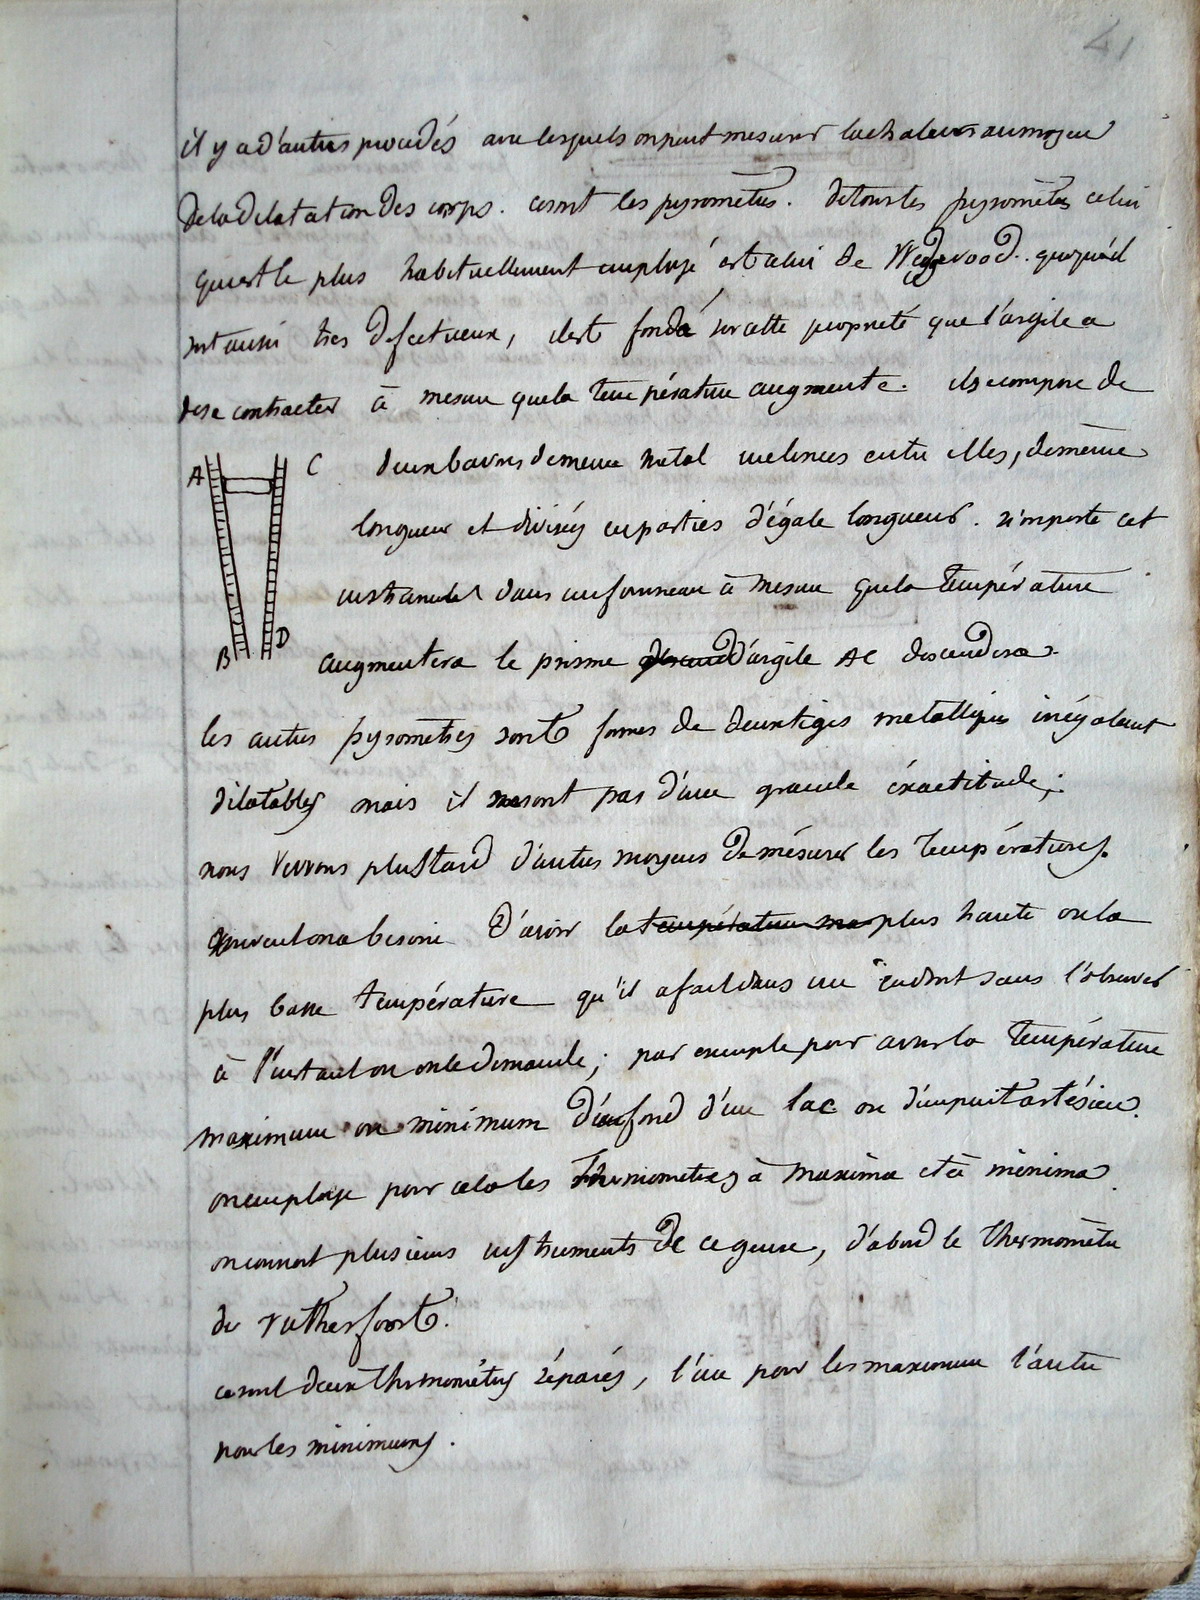 41
il y a d'autres procédés avec lesquels on peut mesurer la chaleur au moyen
de la dilatation des corps. ce sont les pyromètres. de tous les pyromètres celui
qui est le plus habituellement employé est celui de Wedgwood. quoiqu'il
soit aussi très defectueux, il est fondé sur cette propriété que l'argile a
de se contracter à mesure que la température augmente. il se compose de
A C deux barres de meme metal inclinées entre elles, de même
longueur et divisées en parties d'égale longueur. si on porte cet
instrument dans un fourneau à mesure que la température
B D augmentera le prisme d'argile AC descendra.
les autres pyromètres sont formes de deux tiges metalliques inégalement
dilatables mais il ne sont pas d'une grande éxactitude.
nous verrons plus tard d'autres moyens de mésurer les températures.
souvent on a besoin d'avoir la température plus haute ou la
plus basse température qu'il a fait dans un endroit sans l'observer
à l'instant ou on le demande; par exemple pour avoir la température
maximum ou minimum d'un fond d'un lac ou d'un puit artésien.
on employe pour cela les Thermometres à maxima et à minima.
on connoit plusieurs instruments de ce genre, d'abord le thermomètre
de rutherfort.
ce sont deux thermomètres séparés, l'un pour les maximum l'autre
pour les minimums.